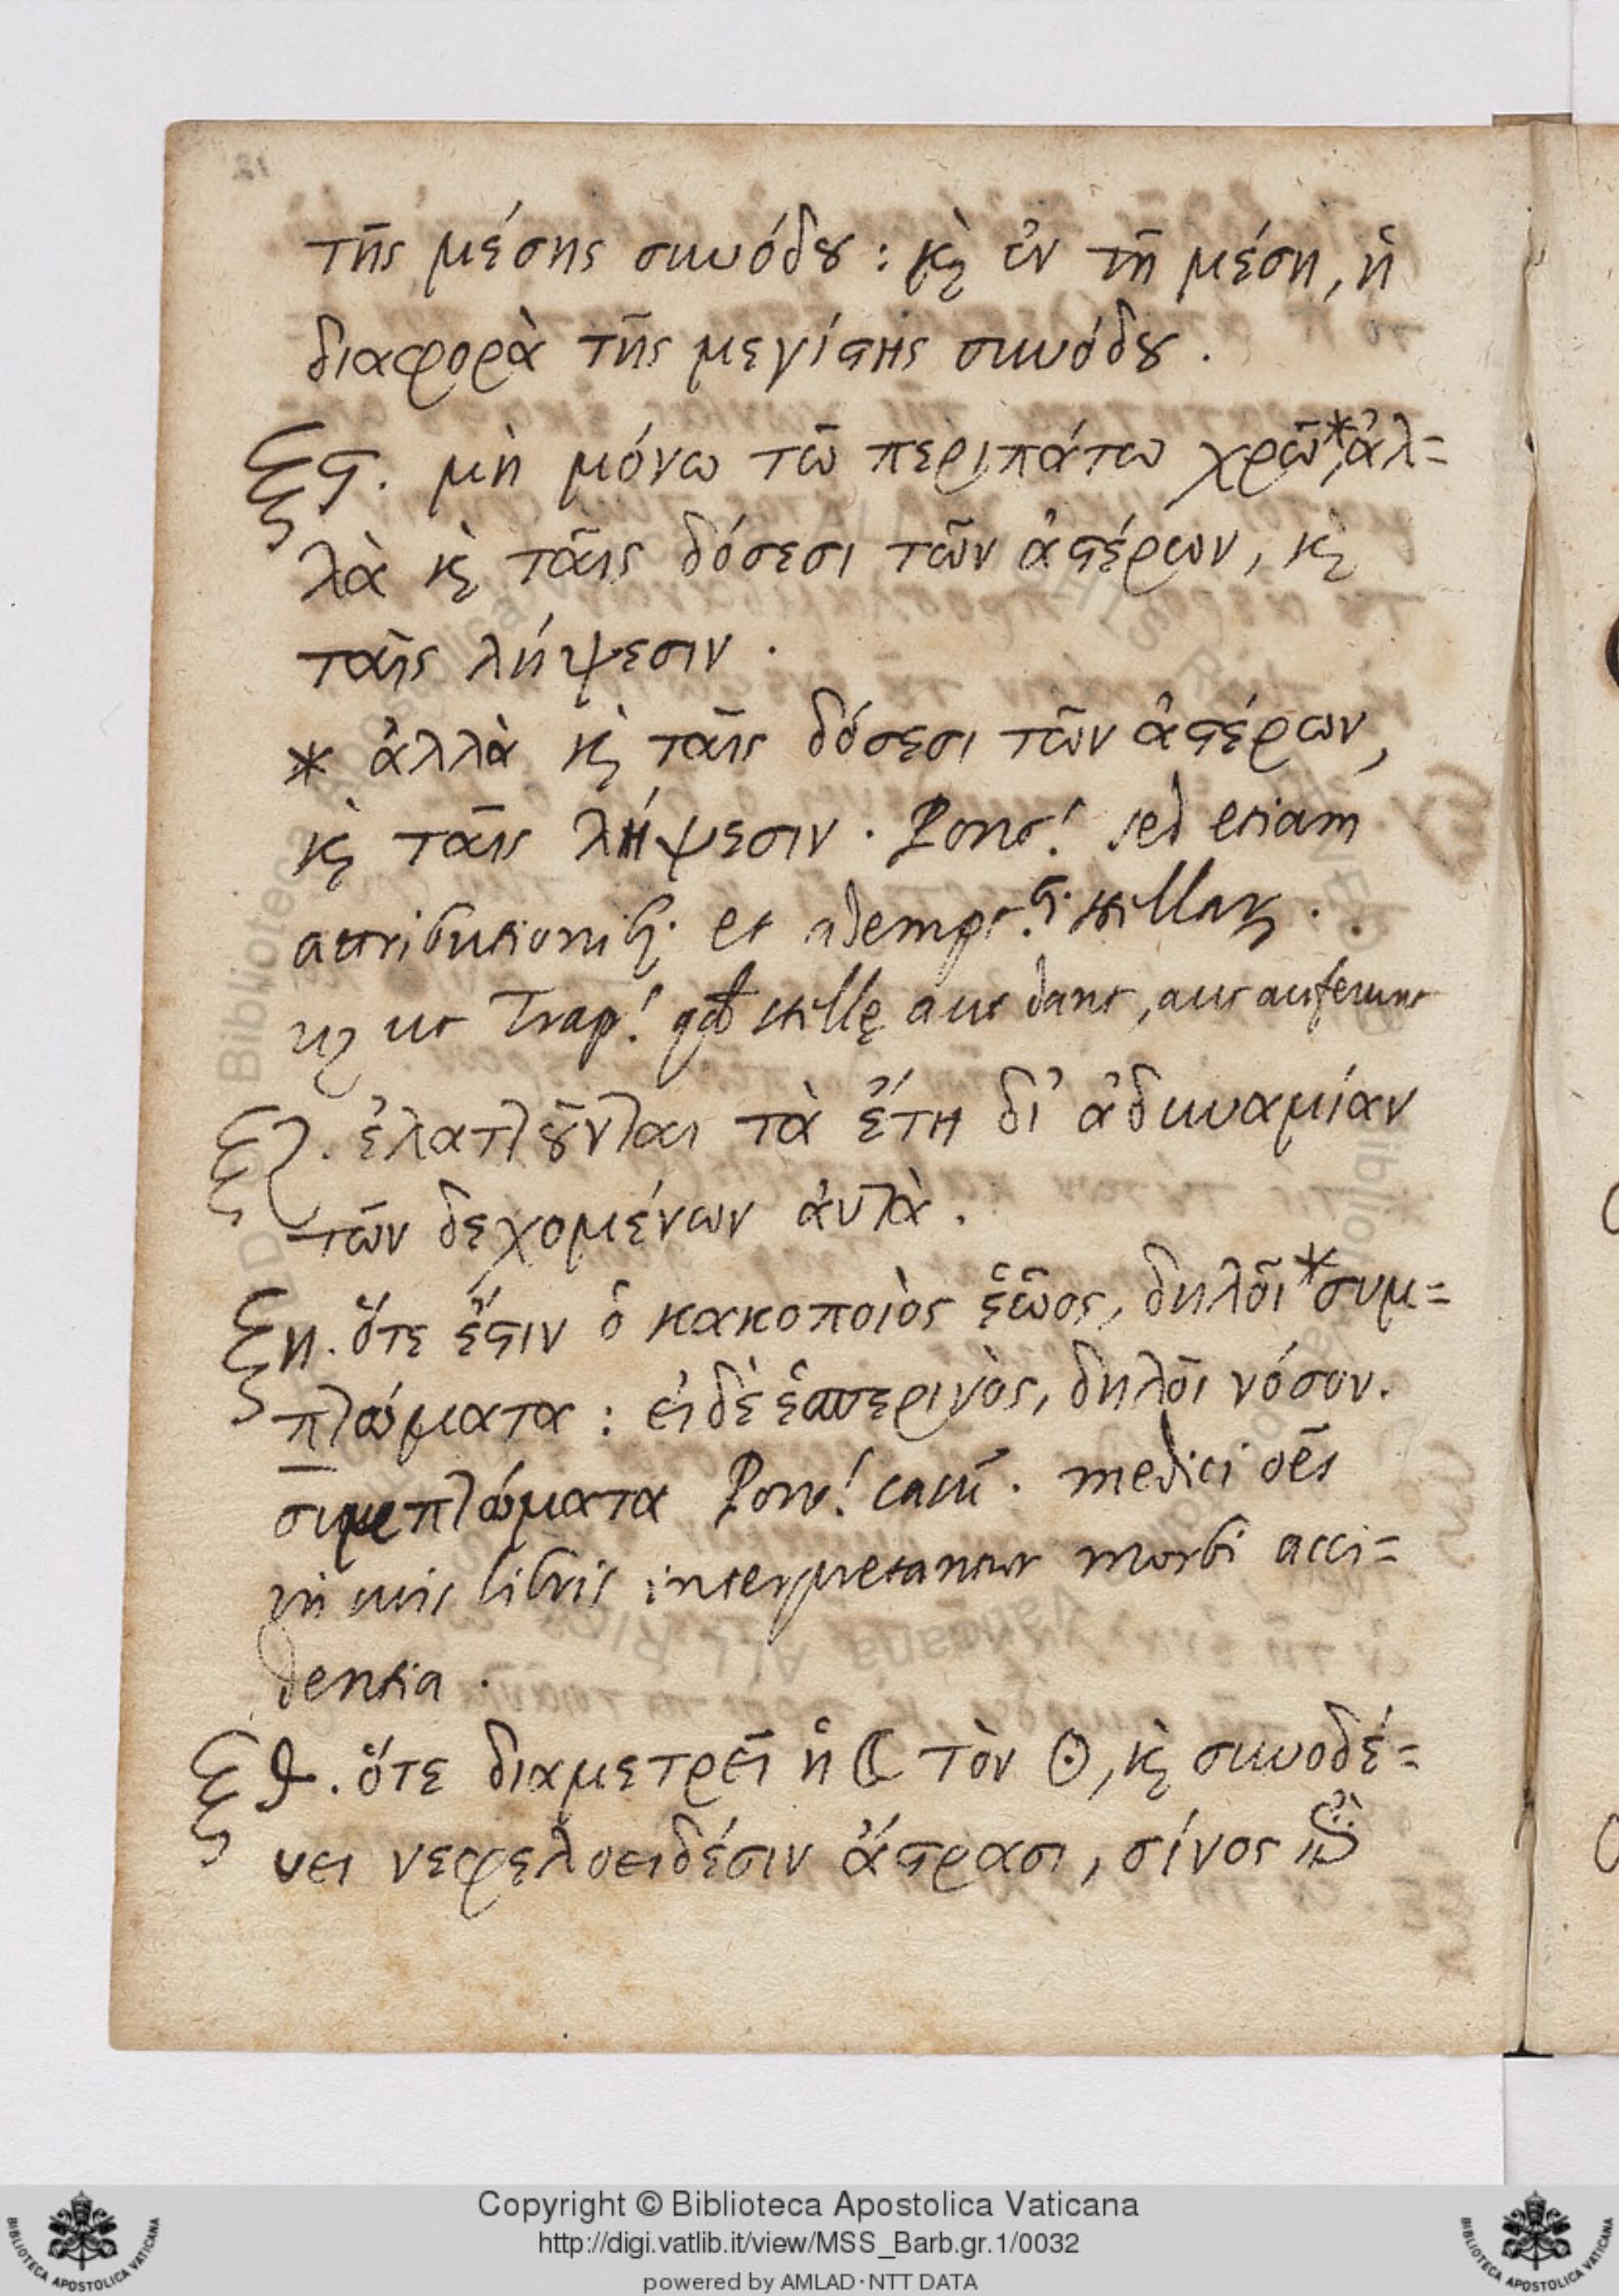 12
τῆς μέσης συνόδȣ : κὶ ἐν τῆ μέση, ἡ
διαφορὰ τῆς μεγίϛης συνόδȣ .
ξϛ. μὴ μόνω τῶ περιπάτω χρῶ*, ἀλ=
λὰ κὶ ταῖς δόσεσι τῶν ἀϛέρων, κὶ
ταῖς λήψεσιν .
* ἀλλὰ κὶ ταῖς δόσεσι τῶν ἀϛέρων,
κὶ ταῖς λήψεσιν . Pont! sed etiam
attributionib; et adempt. stellaꝝ .
ut Trap! qd stellę aut dant, aut auferunt
ξζ. ἐλατȣ͂νται τὰ ἔτη δι' ἀδυναμίαν
τῶν δεχομένων ἀυτὰ .
ξη. ὅτε ἔϛιν ὁ κακοποιὸς ἑῶος, δηλοῖ * συμ=
πτώματα : εἰ δὲ ἑσπερινὸς, δηλοῖ νόσον.
συμπτώματα Pont! casū . medici oēs
in suis libris interpretantur morbi acci=
dentia .
ξθ. ὅτε διαμετρεῖ ἡ ☾ τὸν ☉, κὶ συνοδέ=
υει νεφελοειδέσιν ἄϛρασι, σίνος
Copyright © Biblioteca Apostolica Vaticana
http://digi.vatlib.it/view/MSS_Barb.gr.1/0032
powered by AMLAD·NTT DATA
BIBLIOTECA APOSTOLICA VATICANA
BIBLIOTECA APOSTOLICA VATICANA